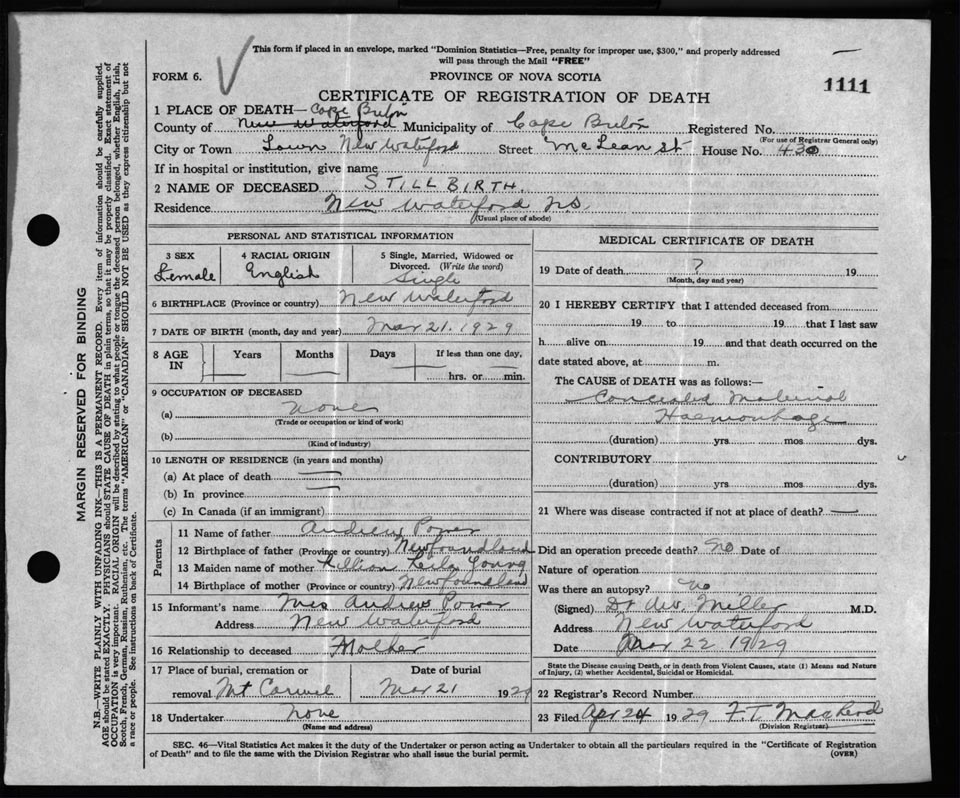 This form if placed in an envelope, marked "Dominion Statistics—Free, penalty for improper use, $300," and properly addressed
will pass through the Mail "FREE"
FORM 6.
PROVINCE OF NOVA SCOTIA
1111
CERTIFICATE OF REGISTRATION OF DEATH
1 PLACE OF DEATH— Cape Breton
County of New Waterford Municipality of Cape Breton Registered No.
(For use of Registrar General only)
City or Town Town New Waterford Street McLean St House No. 430
If in hospital or institution, give name
2 NAME OF DECEASED STILL BIRTH.
Residence New Waterford NS
(Usual place of abode)
PERSONAL AND STATISTICAL INFORMATION
3 SEX Female
4 RACIAL ORIGIN English
5 Single, Married, Widowed or Divorced. (Write the word) Single
6 BIRTHPLACE (Province or country) New Waterford
7 DATE OF BIRTH (month, day and year) Mar 21. 1929
8 AGE IN Years Months Days If less than one day,
hrs. or min.
9 OCCUPATION OF DECEASED
(a) none
(Trade or occupation or kind of work)
(b)
(Kind of industry)
10 LENGTH OF RESIDENCE (in years and months)
(a) At place of death
(b) In province
(c) In Canada (if an immigrant)
Parents
11 Name of father Andrew Power
12 Birthplace of father (Province or country) Newfoundland
13 Maiden name of mother Lillian Young
14 Birthplace of mother (Province or country) Newfoundland
15 Informant's name Mrs Andrew Power
Address New Waterford
16 Relationship to deceased Mother
17 Place of burial, cremation or removal Mt Carmel
Date of burial Mar 21 1929
18 Undertaker none
(Name and address)
MEDICAL CERTIFICATE OF DEATH
19 Date of death ? 19
(Month, day and year)
20 I HEREBY CERTIFY that I attended deceased from
19 to 19 that I last saw
h alive on 19 and that death occurred on the
date stated above, at m.
The CAUSE OF DEATH was as follows:—
Concealed Maternal
Haemorrhage
(duration) yrs mos dys.
CONTRIBUTORY
(duration) yrs mos dys.
21 Where was disease contracted if not at place of death? —
Did an operation precede death? no Date of
Nature of operation
Was there an autopsy? no
(Signed) Dr Miller M.D.
Address New Waterford
Date Mar 22 1929
State the Disease causing Death, or in death from Violent Causes, state (1) Means and Nature
of Injury, (2) whether Accidental, Suicidal or Homicidal.
22 Registrar's Record Number
23 Filed Apr 24 1929 F.T. MacLeod
(Division Registrar)
SEC. 46—Vital Statistics Act makes it the duty of the Undertaker or person acting as Undertaker to obtain all the particulars required in the "Certificate of Registration
of Death" and to file the same with the Division Registrar who shall issue the burial permit.
(OVER)
MARGIN RESERVED FOR BINDING
N.B.—WRITE PLAINLY WITH UNFADING INK—THIS IS A PERMANENT RECORD. Every item of information should be carefully supplied.
AGE should be stated EXACTLY. PHYSICIANS should STATE CAUSE OF DEATH in plain terms, so that it may be properly classified. Exact statement of
OCCUPATION is very important. RACIAL ORIGIN will be described by stating to what people or tongue the deceased person belonged, whether English, Irish,
Scotch, French, German, Russian, Ruthenian, etc. The terms "AMERICAN" or "CANADIAN" SHOULD NOT BE USED as they express citizenship but not
a race or people. See instructions on back of Certificate.